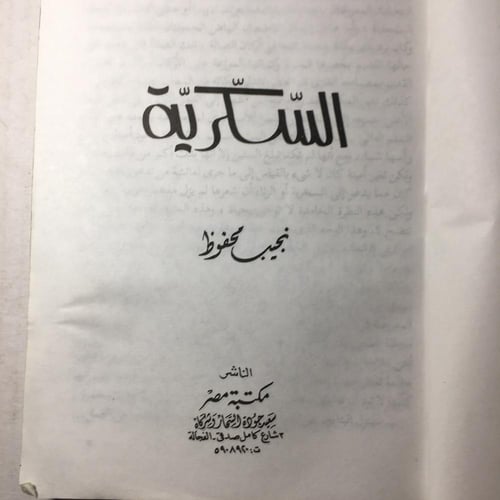 السّكّريّة
نجيب محفوظ
الناشر
مكتبة مصر
سعيد جوده السحار وشركاه
٣ شارع كامل صدقى - الفجالة
ت : ٥٩٠٨٩٢٠